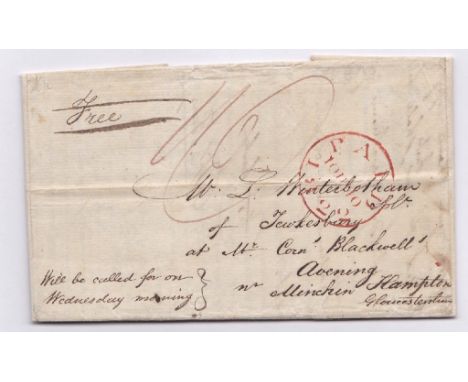 Free
PAID
Mr. L. Winterbotham
Solr.
of Tewkesbury
at Mr. Corns. Blackwell's
Avening
nr Minchin Hampton
Gloucestershire
Will be called for on
Wednesday morning